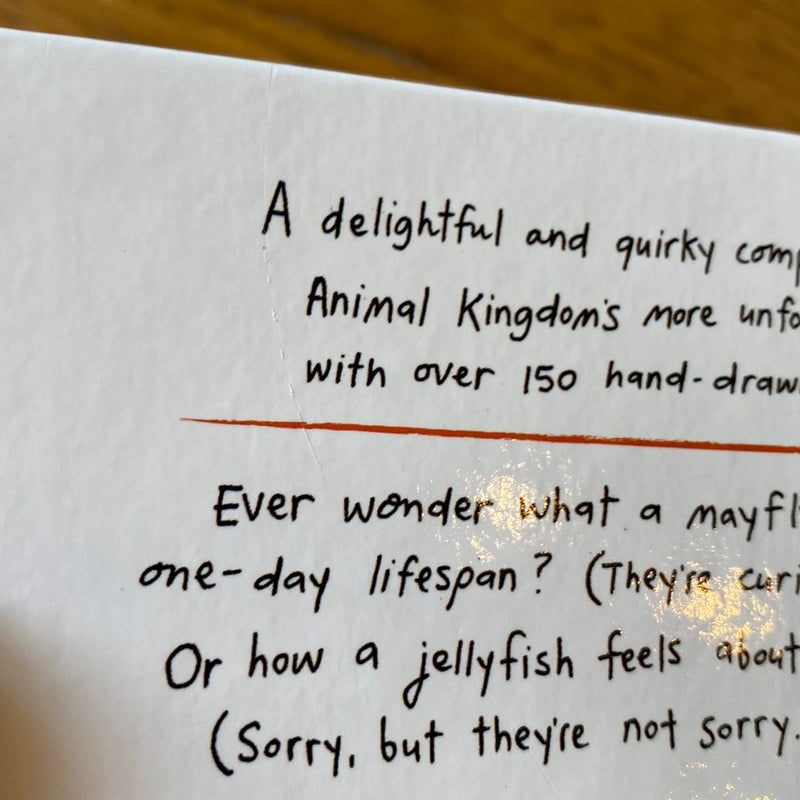 A delightful and quirky comp
Animal Kingdom's more unfo
with over 150 hand-draw
Ever wonder what a mayfl
one-day lifespan? (They're curi
Or how a jellyfish feels about
(Sorry, but they're not sorry.